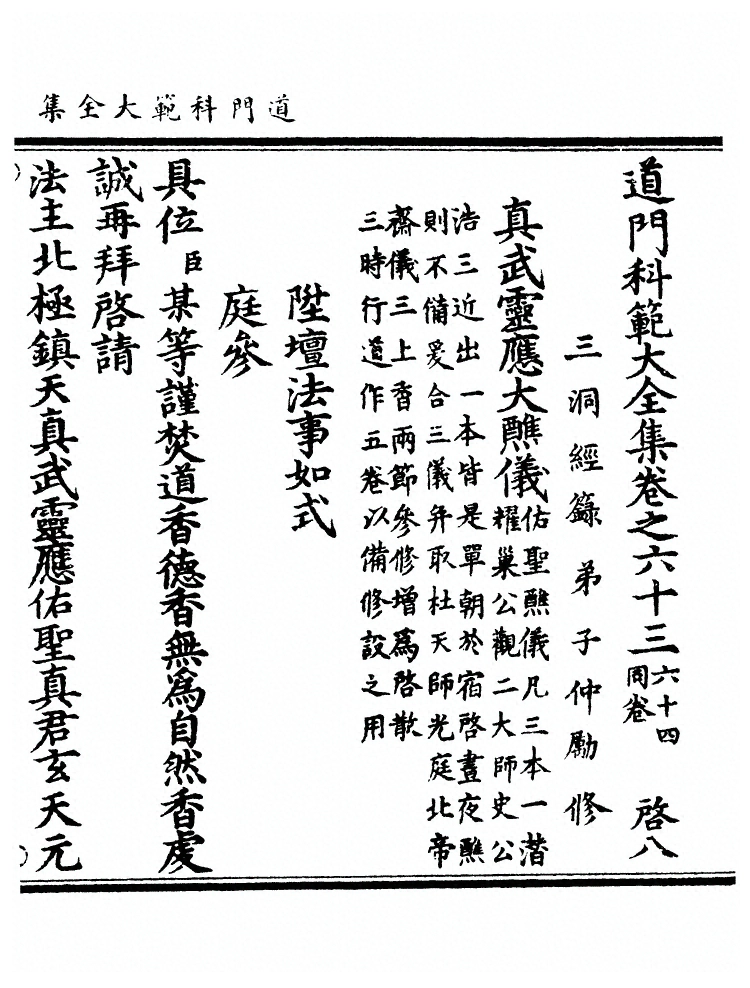 道門科範大全集
道門科範大全集卷之六十三 六十四
同卷 啓八
三洞經籙弟子仲勵修
真武靈應大醮儀 佑聖醮儀凡三本一潛
耀巢公觀二大師史公
浩三近出一本皆是單朝於宿啓晝夜醮
則不備爰合三儀并取杜天師光庭北帝
齋儀三上香兩節參修增爲啓散
三時行道作五卷以備修設之用
陞壇法事如式
庭參
具位臣某等謹焚道香德香無爲自然香虔
誠再拜啓請
法主北極鎮天真武靈應佑聖真君玄天元